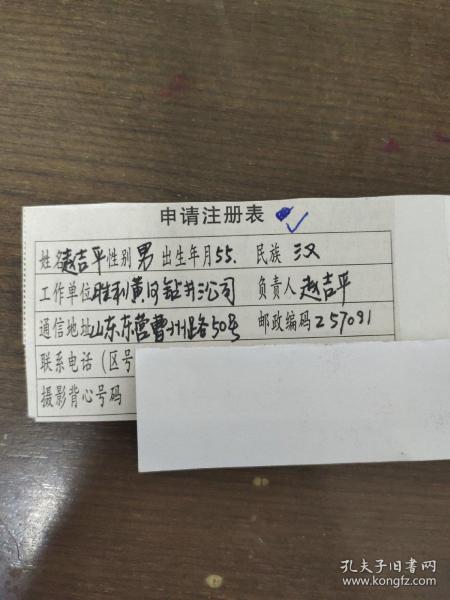 申请注册表
姓名赵吉平性别男出生年月55.民族汉
工作单位胜利黄河钻井三公司负责人赵吉平
通信地址山东东营曹州路50号邮政编码257091
联系电话(区号
摄影背心号码
孔夫子旧书网
www.kongfz.com